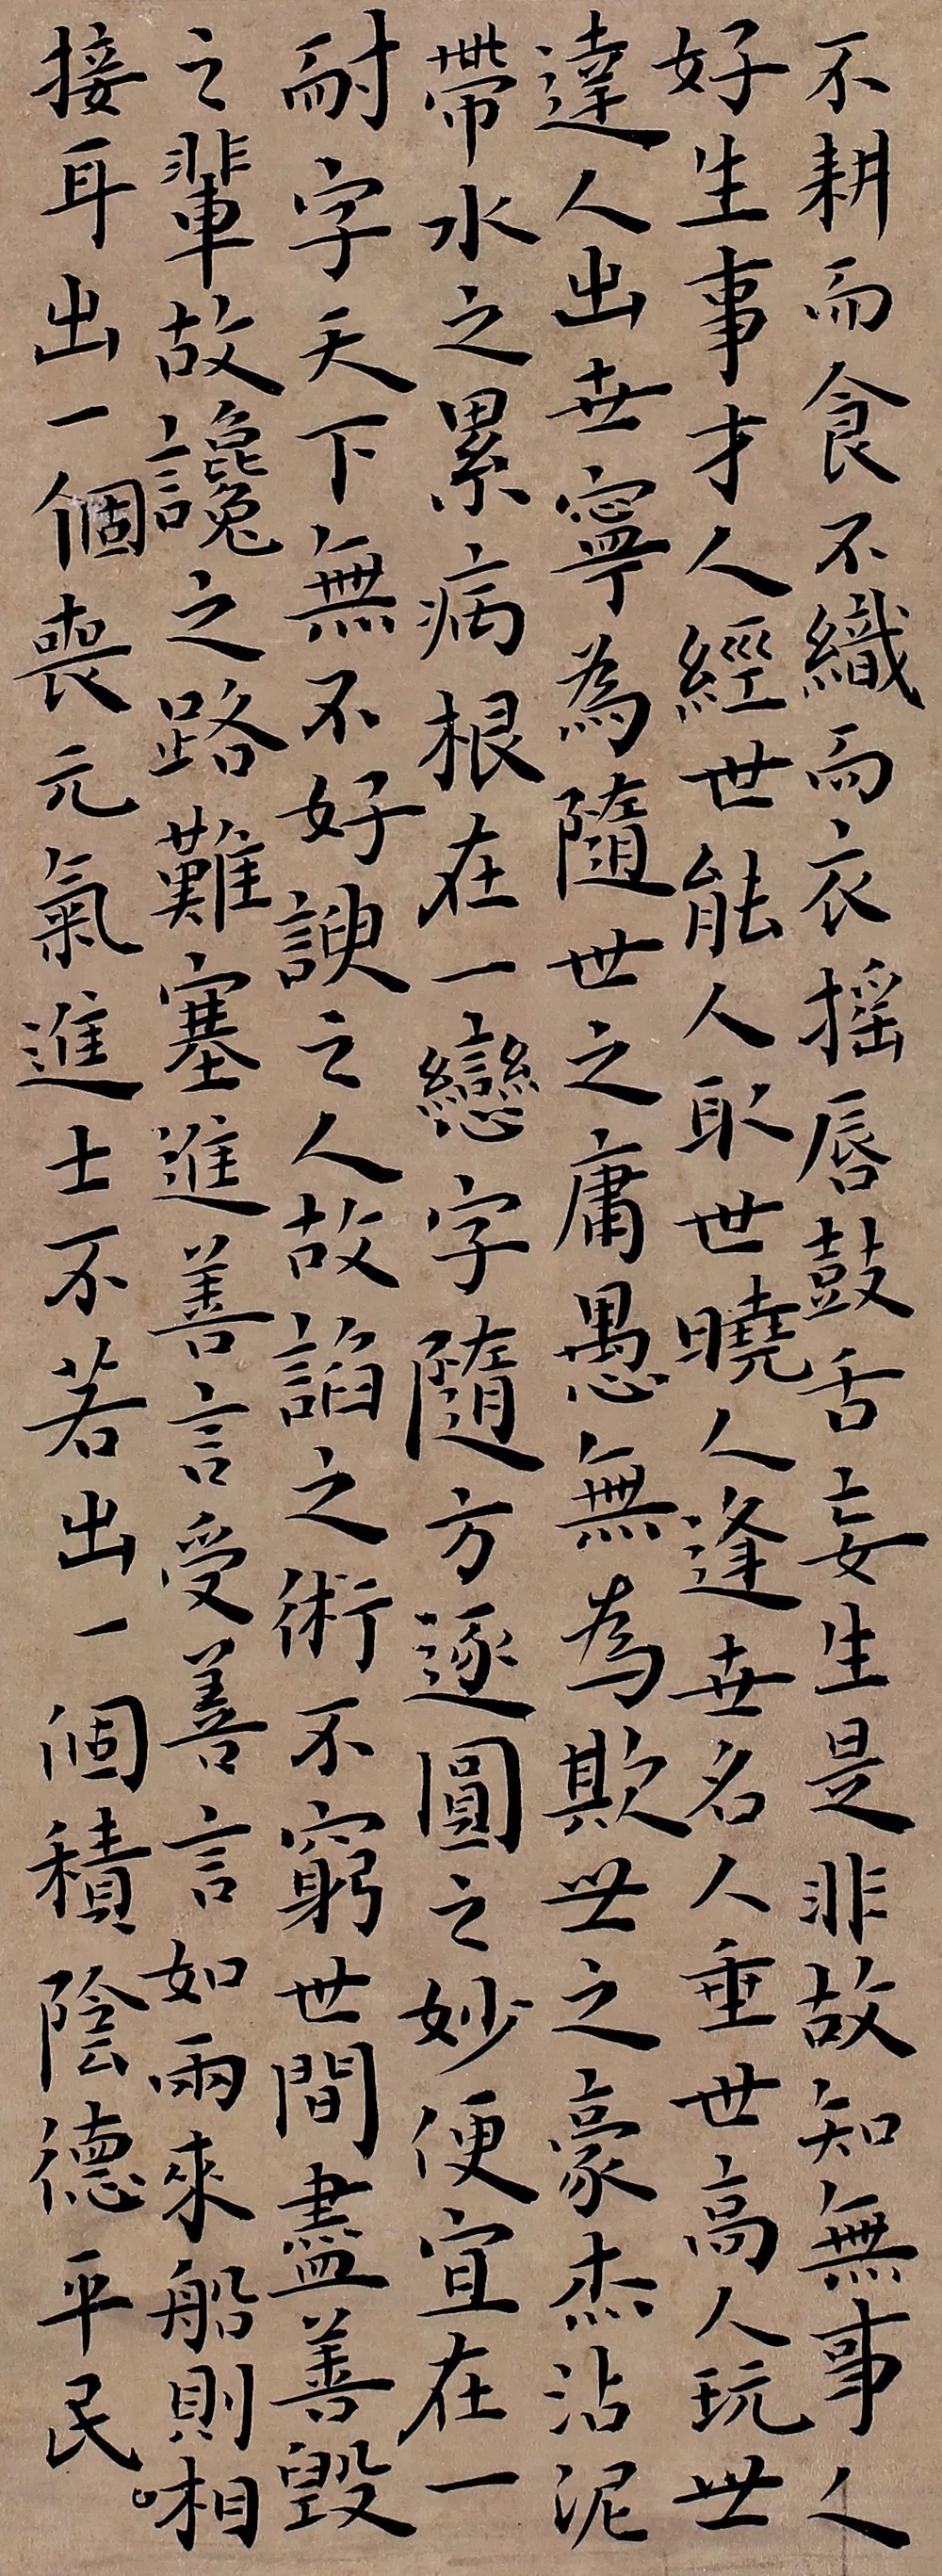 不耕而食不織而衣搖唇鼓舌妄生是非故知無事人
好生事才人經世能人取世曉人逢世名人垂世高人玩世
達人出世寧為隨世之庸愚無為欺世之豪杰沾泥
帶水之累病根在一戀字隨方逐圓之妙便宜在一
耐字天下無不好諛之人故諂之術不窮世間盡善毀
之輩故讒之路難塞進善言受善言如兩來船則相
接耳出一個喪元氣進士不若出一個積陰德平民